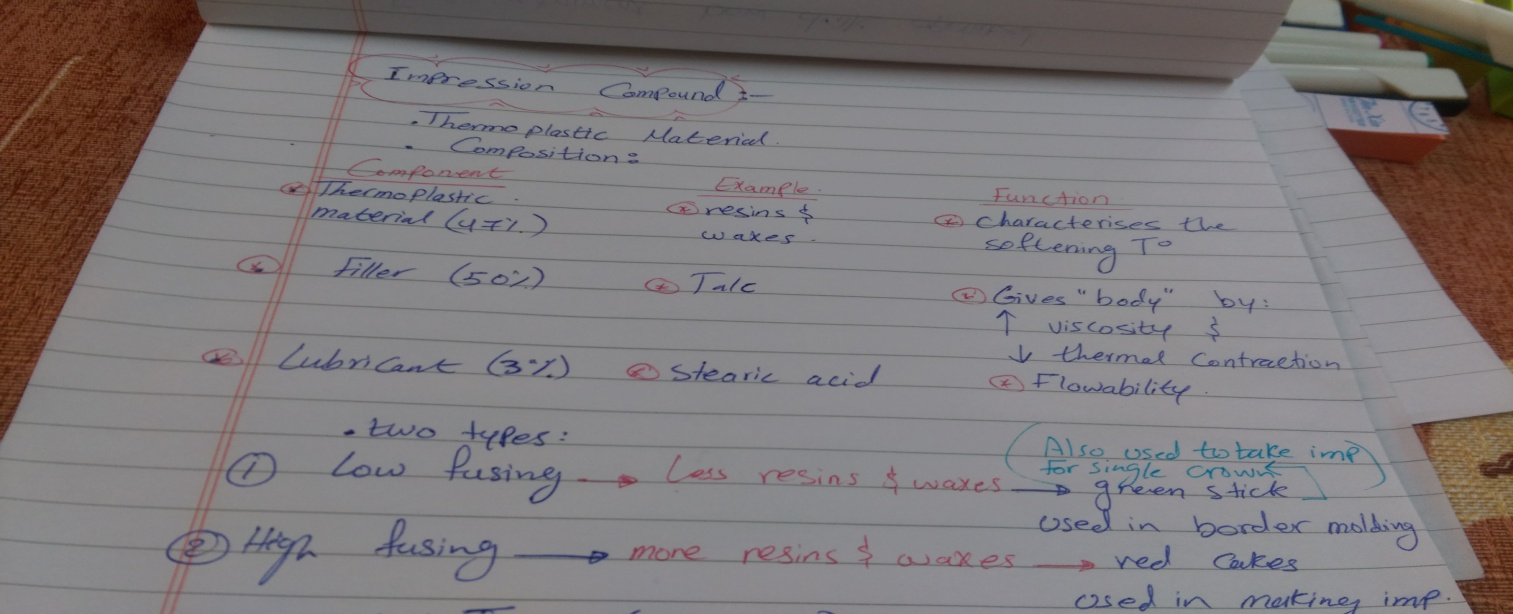 Impression Compound :-
• Thermoplastic Material.
• Composition:
Component Example. Function
Thermoplastic material (47%)
resins & waxes.
characterises the softening T°
Filler (50%) Talc
Gives "body" by:
↑ viscosity &
↓ thermal contraction
Lubricant (3%) Stearic acid Flowability.
• two types:
(Also used to take imp for single crown)
① Low fusing → Less resins & waxes → green stick
used in border molding
② High fusing → more resins & waxes → red cakes
used in making imp.